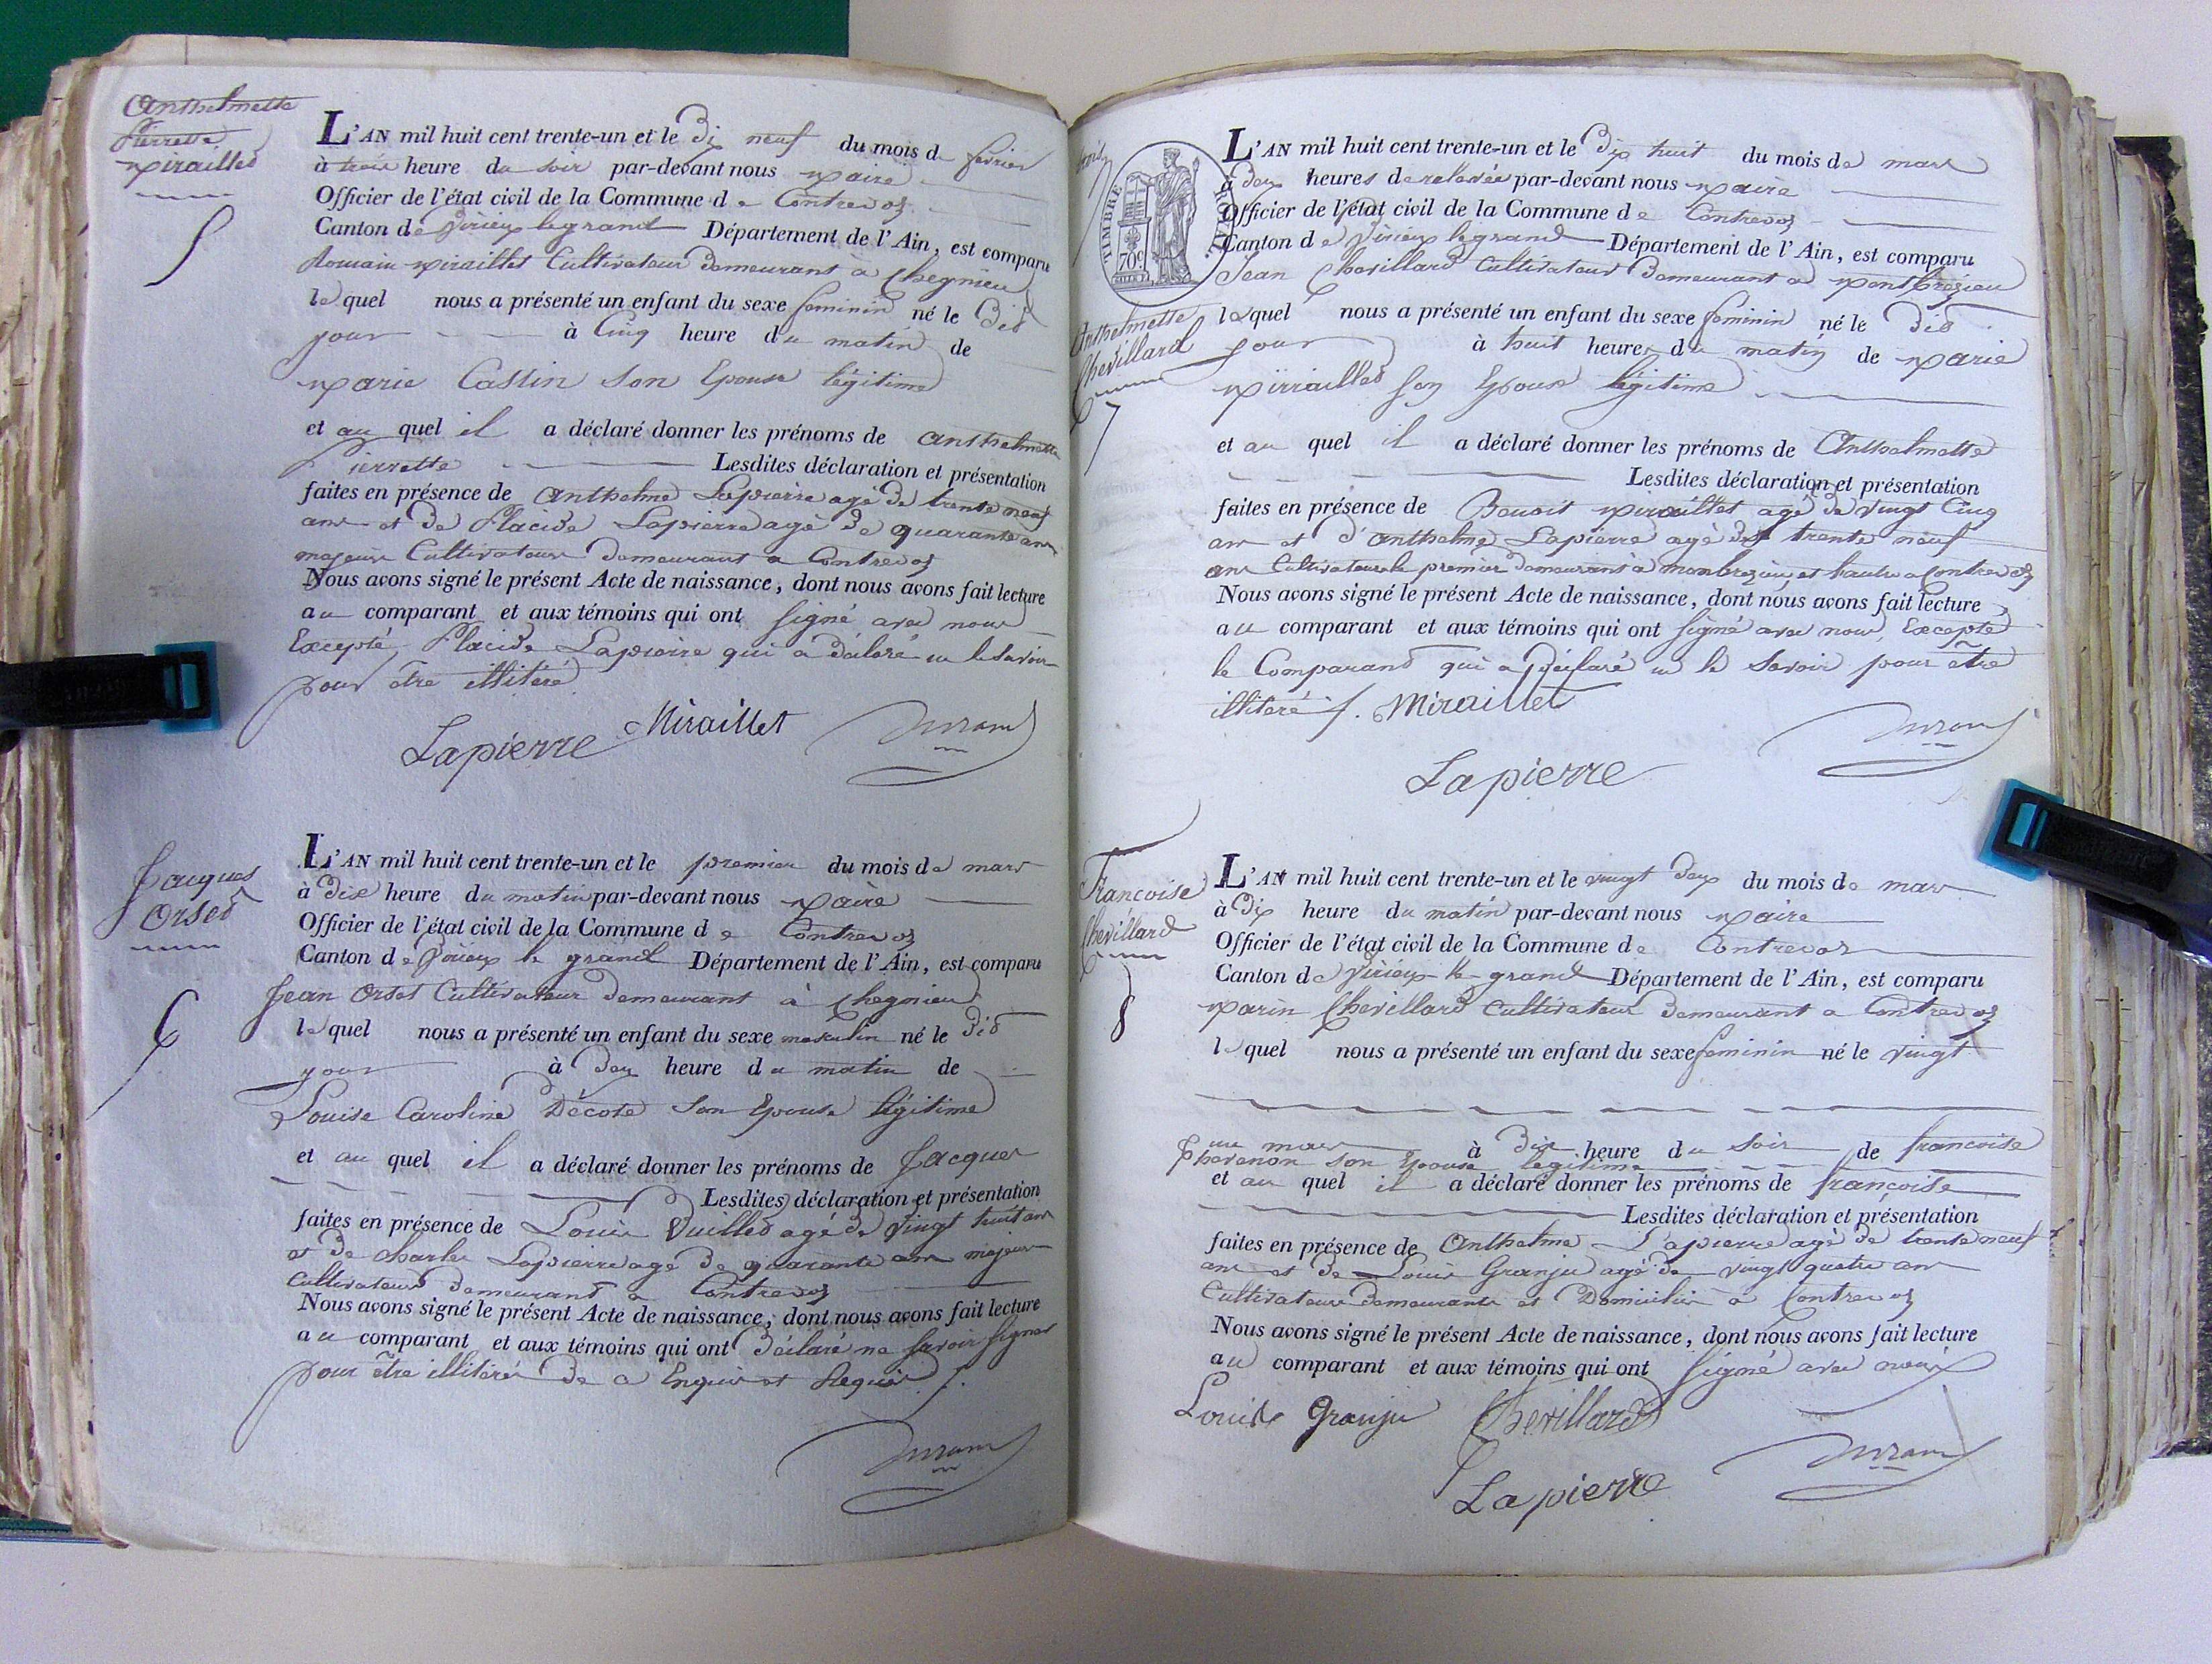 Anthelmette
Pierrette
Miraillet
5
L'AN mil huit cent trente-un et le dix neuf du mois de fevrier
à trois heure du soir par-devant nous Maire
Officier de l'état civil de la Commune de Contrevoz
Canton de Virieux legrand Département de l'Ain, est comparu
Romain Miraillet Cultivateur demeurant à Chegnieu
lequel nous a présenté un enfant du sexe feminin né le dit
jour à Cinq heure du matin de
Marie Castin son Epouse légitime
et au quel il a déclaré donner les prénoms de Anthelmette
Pierrette Lesdites déclaration et présentation
faites en présence de Anthelme Lapierre agé de trente neuf
ans et de Placide Lapierre agé de quarante ans
majeurs Cultivateurs demeurant a Contrevoz
Nous avons signé le présent Acte de naissance, dont nous avons fait lecture
au comparant et aux témoins qui ont signé avec nous
Excepté Placide Lapierre qui a déclaré ne le savoir
pour être illitéré
Lapierre Miraillet Durand
Jacques
Orset
6
L'AN mil huit cent trente-un et le premier du mois de mars
à dix heure du matin par-devant nous Maire
Officier de l'état civil de la Commune de Contrevoz
Canton de Virieux le grand Département de l'Ain, est comparu
Jean Orset Cultivateur demeurant à Chegnieu
lequel nous a présenté un enfant du sexe masculin né le dit
jour à deux heure du matin de
Louise Caroline Décote son Epouse légitime
et au quel il a déclaré donner les prénoms de Jacques
Lesdites déclaration et présentation
faites en présence de Louis Vuillet agé de vingt huit ans
et de charles Lapierre agé de quarante ans majeurs
Cultivateurs demeurant a Contrevoz
Nous avons signé le présent Acte de naissance, dont nous avons fait lecture
au comparant et aux témoins qui ont déclaré ne savoir signer
pour être illitérés de ce Enquis et Requis
Durand
TIMBRE ROYAL
70c
L'AN mil huit cent trente-un et le dix huit du mois de mars
à deux heures de relevée par-devant nous Maire
Officier de l'état civil de la Commune de Contrevoz
Canton de Virieux legrand Département de l'Ain, est comparu
Jean Chevillard Cultivateur demeurant a Montbrézieu
Anthelmette
Chevillard
7
lequel nous a présenté un enfant du sexe feminin né le dit
jour à huit heures du matin de Marie
Mirraillet son Epouse légitime
et au quel il a déclaré donner les prénoms de Anthelmette
Lesdites déclaration et présentation
faites en présence de Benoit Miraillet agé de vingt Cinq
ans et d'anthelme Lapierre agé de trente neuf
ans Cultivateurs le premier demeurant à monbrezieu et l'autre a Contrevoz
Nous avons signé le présent Acte de naissance, dont nous avons fait lecture
au comparant et aux témoins qui ont signé avec nous, Excepté
le Comparand qui a déclaré ne le savoir pour être
illitéré /. Miraillet
Durand
Lapierre
Francoise
Chevillard
8
L'AN mil huit cent trente-un et le vingt deux du mois de mars
à dix heure du matin par-devant nous Maire
Officier de l'état civil de la Commune de Contrevoz
Canton de Virieux le grand Département de l'Ain, est comparu
Marin Chevillard Cultivateur demeurant a Contrevoz
lequel nous a présenté un enfant du sexe feminin né le vingt
une mars à dix heure du soir de francoise
Thevenon son Epouse légitime
et au quel il a déclaré donner les prénoms de francoise
Lesdites déclaration et présentation
faites en présence de Anthelme Lapierre agé de trente neuf
ans et de Louis Granju agé de vingt quatre ans
Cultivateurs demeurants et Domiciliés a Contrevoz
Nous avons signé le présent Acte de naissance, dont nous avons fait lecture
au comparant et aux témoins qui ont signé avec nous
Louis Granju Chevillard
Durand
Lapierre